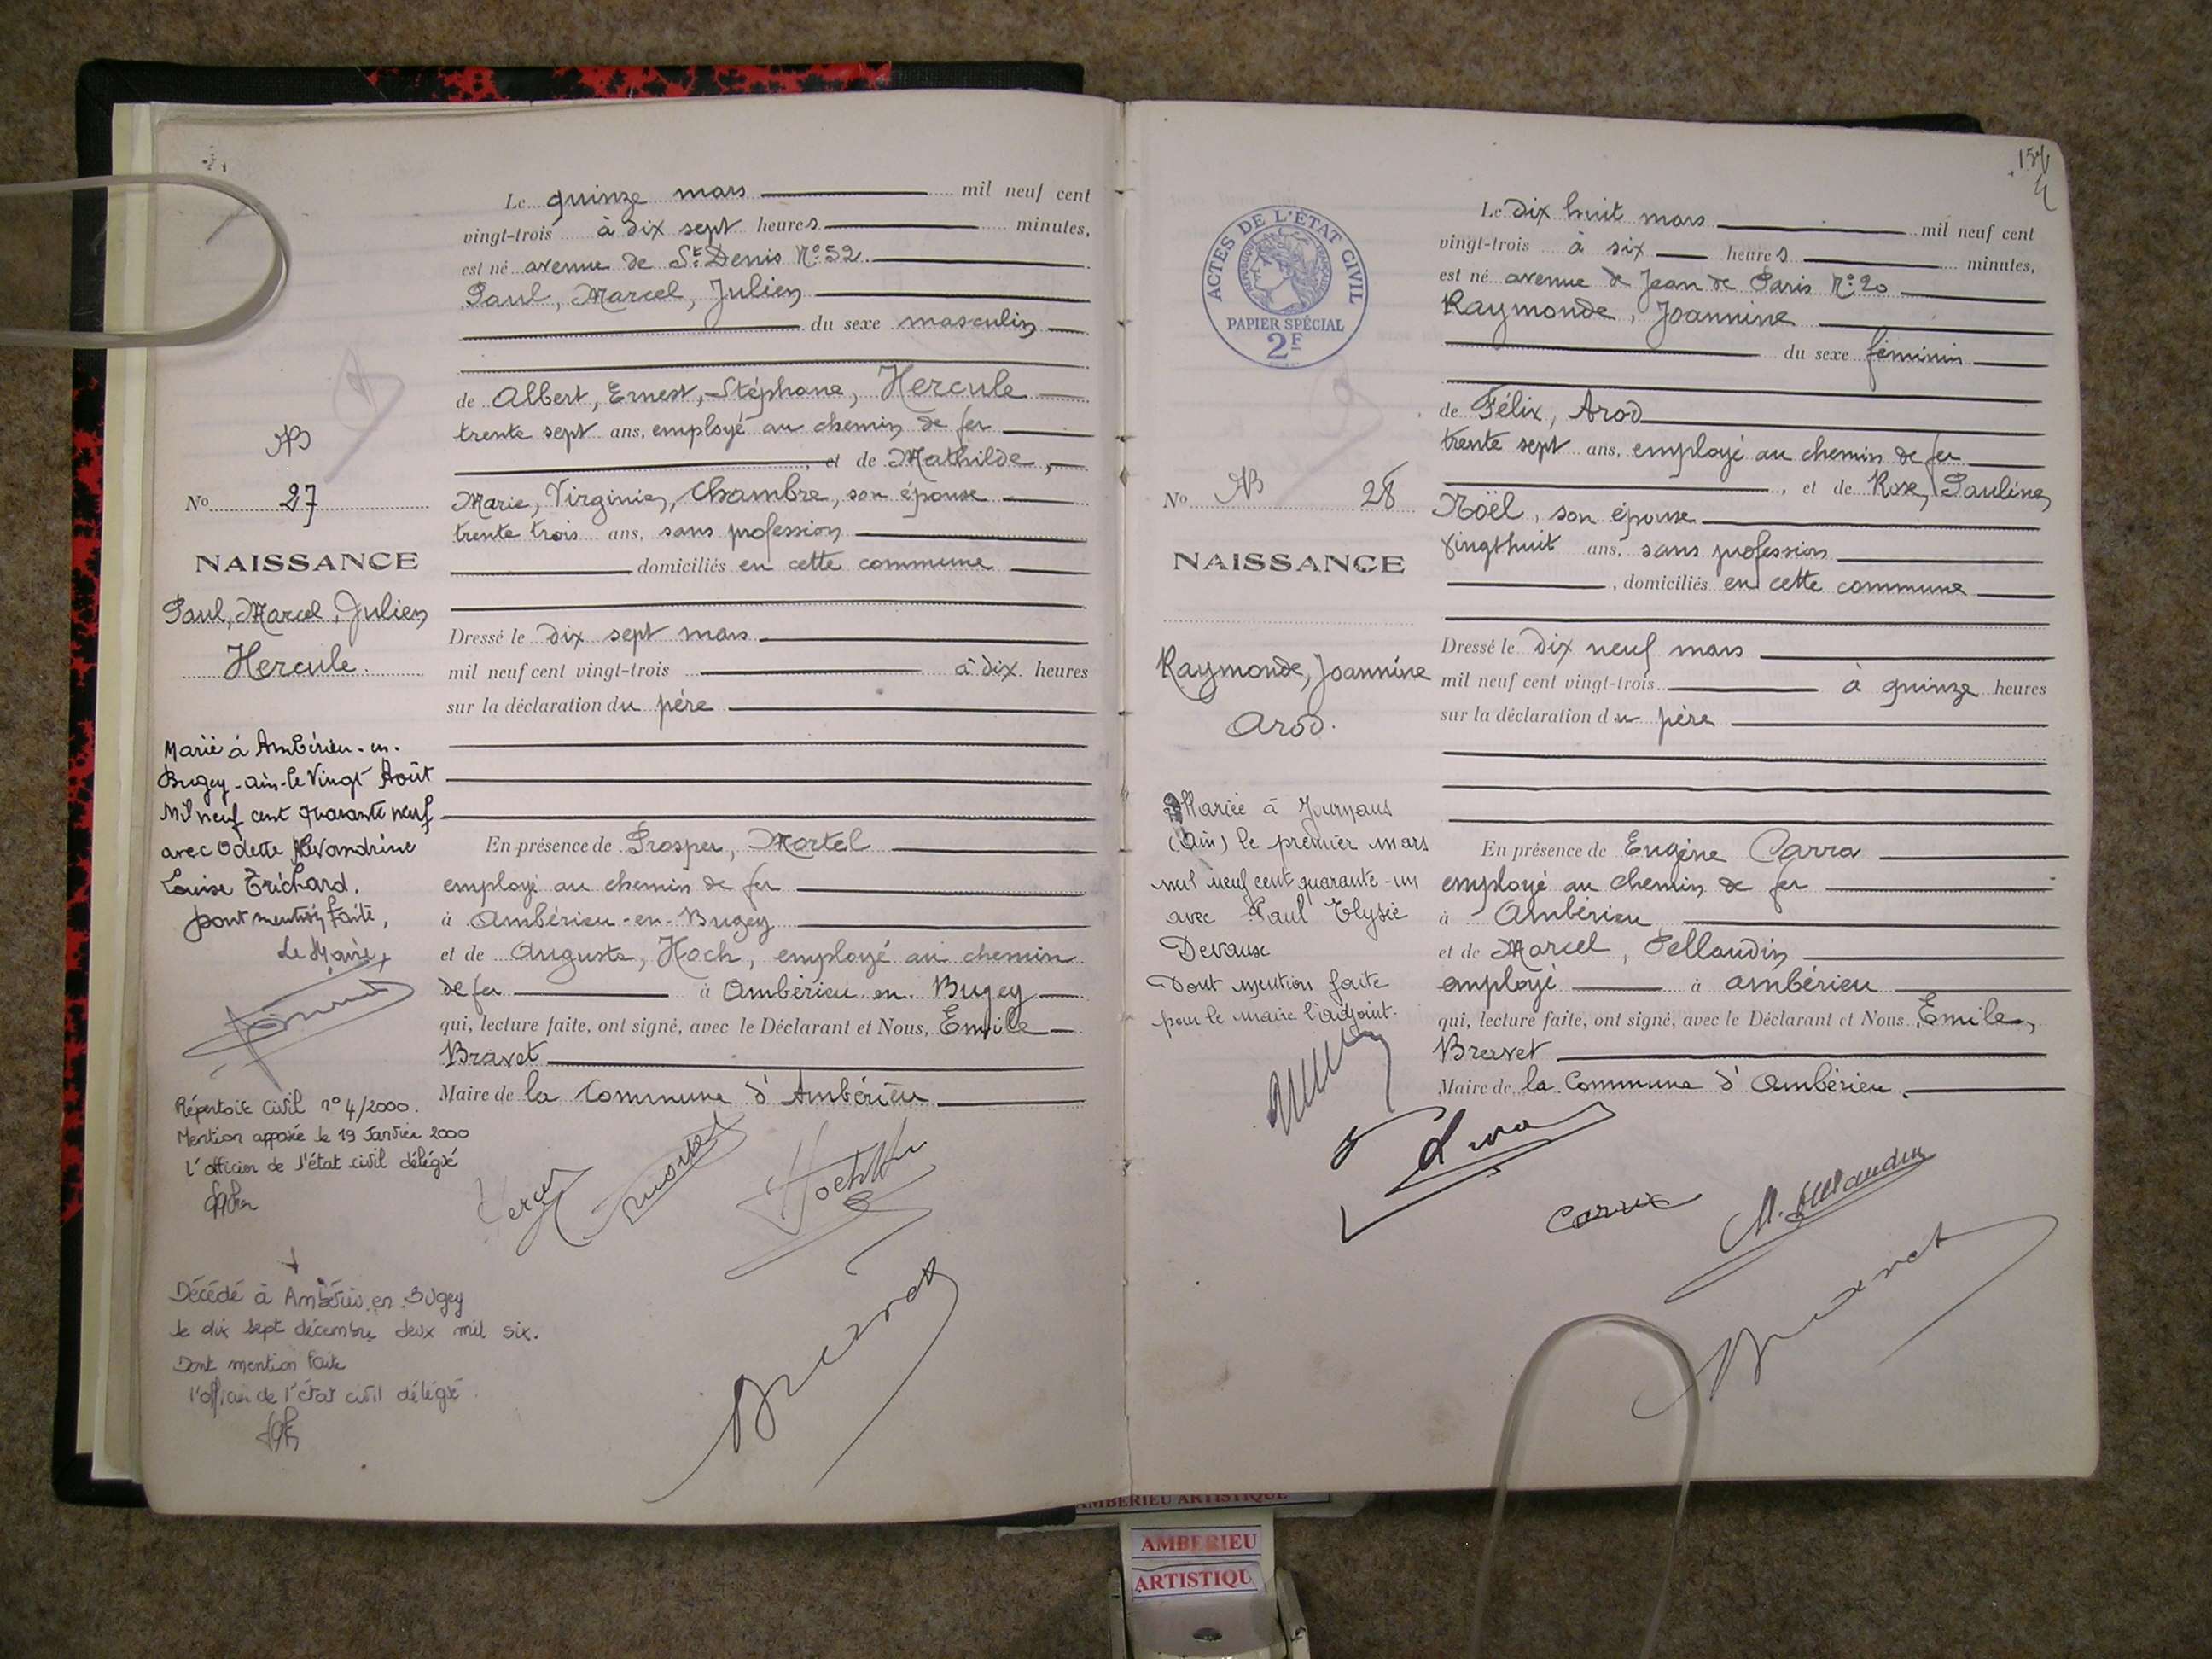 NB
No 27
NAISSANCE
Paul, Marcel, Julien
Hercule.
Marié à Ambérieu-en-
Bugey-Ain-le Vingt Août
Mil neuf cent quarante neuf
avec Odette Alexandrine
Louise Trichard.
dont mention faite,
Le Maire,
Répertoire Civil n° 4/2000.
Mention apposée le 19 Janvier 2000
l'officier de l'état civil délégué
Décédé à Ambérieu en Bugey
le dix sept décembre deux mil six.
Dont mention faite
l'officier de l'état civil délégué
Le quinze mars mil neuf cent
vingt-trois à dix sept heures minutes,
est né avenue de St Denis N° 52
Paul, Marcel, Julien
du sexe masculin
de Albert, Ernest, Stéphane, Hercule
trente sept ans, employé au chemin de fer
, et de Mathilde,
Marie, Virginie, Chambre, son épouse
trente trois ans, sans profession
domiciliés en cette commune
Dressé le dix sept mars
mil neuf cent vingt-trois à dix heures
sur la déclaration du père
En présence de Prosper, Mortel
employé au chemin de fer
à Ambérieu-en-Bugey
et de Auguste, Hoch, employé au chemin
de fer à Ambérieu en Bugey
qui, lecture faite, ont signé, avec le Déclarant et Nous, Emile
Bravet
Maire de la Commune d'Ambérieu
Bravet
157
ACTES DE L'ÉTAT CIVIL
RÉPUBLIQUE FRANÇAISE
PAPIER SPÉCIAL
2F
No NB 28
NAISSANCE
Raymonde, Joannine
Arod.
Mariée à Journans
(Ain) le premier mars
mil neuf cent quarante-un
avec Paul Elysée
Devaux
Dont mention faite
pour le maire l'adjoint.
Le Dix huit mars mil neuf cent
vingt-trois à six heures minutes,
est né avenue de Jean de Paris N° 20
Raymonde, Joannine
du sexe féminin
de Félix, Arod
trente sept ans, employé au chemin de fer
, et de Rose, Pauline,
Noël, son épouse
vingt huit ans, sans profession
, domiciliés en cette commune
Dressé le dix neuf mars
mil neuf cent vingt-trois à quinze heures
sur la déclaration du père
En présence de Eugène Carra
employé au chemin de fer
à Ambérieu
et de Marcel, Pellaudin
employé à ambérieu
qui, lecture faite, ont signé, avec le Déclarant et Nous Emile,
Bravet
Maire de la Commune d'Ambérieu.
Carra
Bravet
AMBERIEU ARTISTIQUE
AMBERIEU
ARTISTIQU